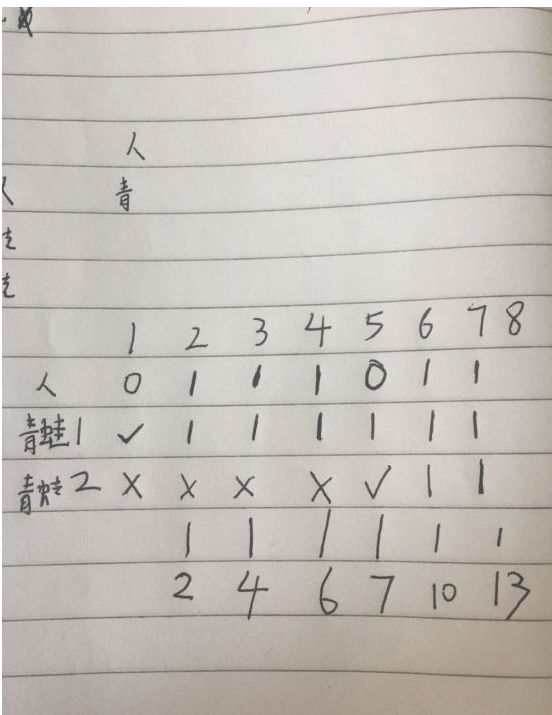 人
青
1 2 3 4 5 6 7 8
人 0 1 1 1 0 1 1
青蛙1 ✓ 1 1 1 1 1 1
青蛙2 × × × × ✓ 1 1
1 1 1 1 1 1
2 4 6 7 10 13